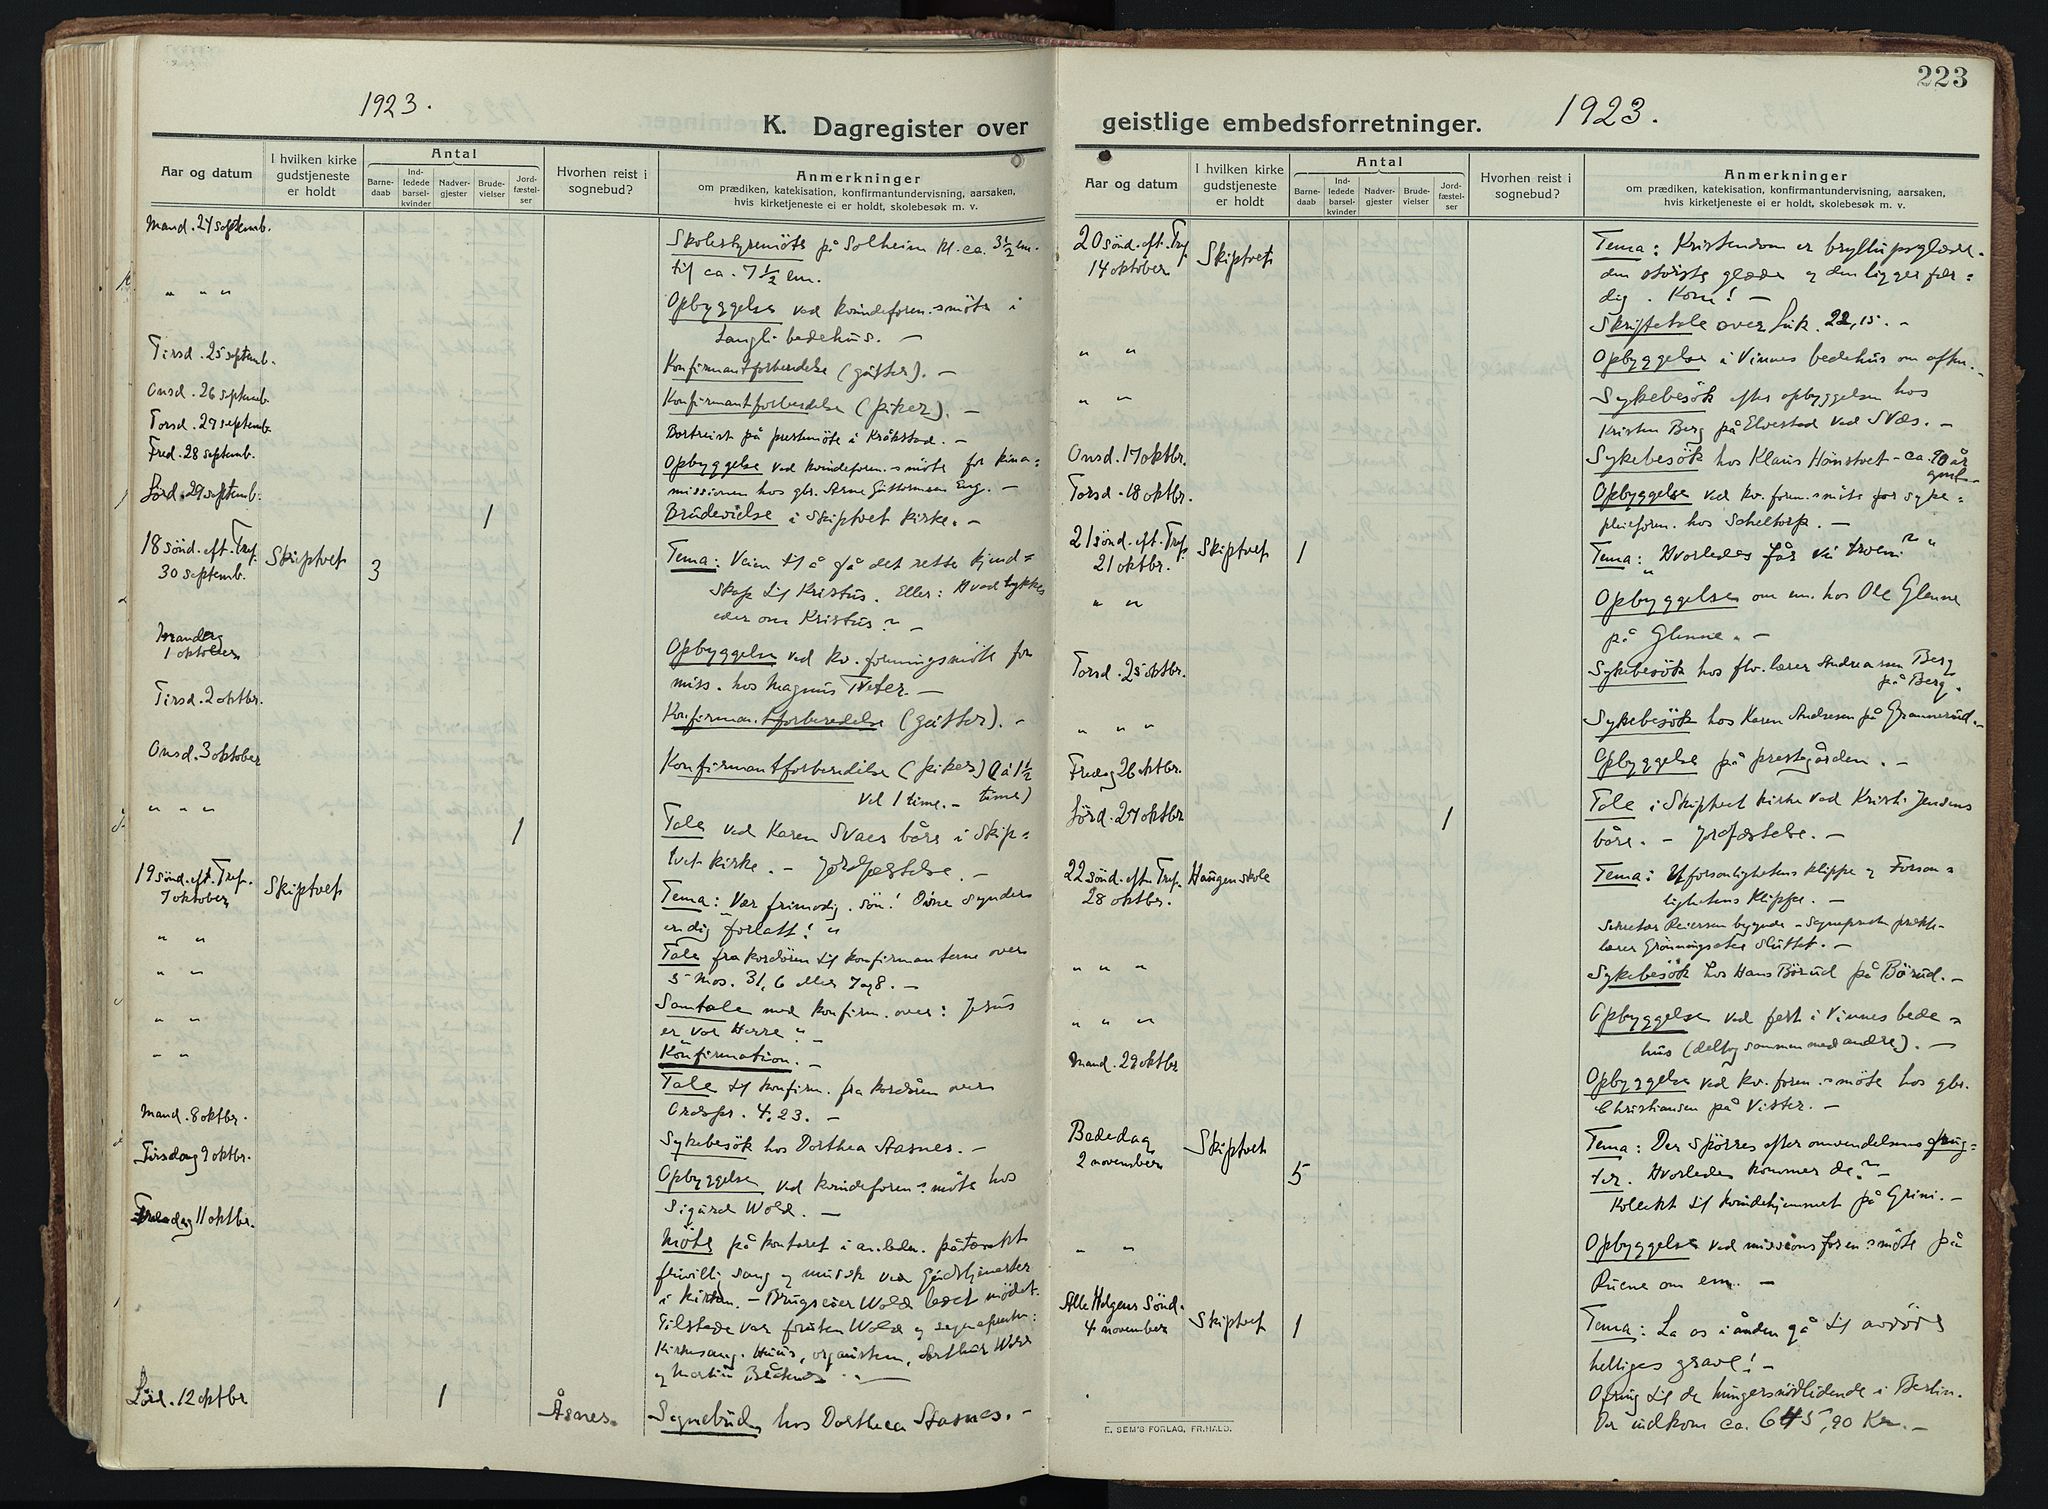 223
1923.
1923.
K. Dagregister over
geistlige embedsforretninger.
Aar og datum
I hvilken kirke
gudstjeneste
er holdt
Antal
Barne-
daab
Ind-
ledede
barsel-
kvinder
Nadver-
gjester
Brude-
vielser
Jord-
fæstel-
ser
Hvorhen reist i
sognebud?
Anmerkninger
om prædiken, katekisation, konfirmantundervisning, aarsaken,
hvis kirketjeneste ei er holdt, skolebesøk m. v.
Mand. 24 septemb.
Skolestyremöte på Solheim kl. ca. 3½ em.
til ca. 7½ em.
" " "
Opbyggelse ved kvindeforen.s möte i
Langli bedehus. —
Tirsd. 25 septemb.
Konfirmantforberedelse (gutter). —
Onsd. 26 septemb.
Konfirmantforberedelse (piker). —
Torsd. 27 septemb.
Bortreist på prestemöte i Kråkstad. —
Fred. 28 septemb.
Opbyggelse ved kvindeforen.s möte for kina=
missionen hos gbr. Arne Guttormsen Eng. —
Lörd. 29 septemb.
1
Brudevielse i Skiptvet kirke. —
18 sönd. eft. Tref.
30 septemb.
Skiptvet
3
Tema: Veien til å få det rette kjend=
skap til Kristus. Eller: Hvad tykkes
eder om Kristus? —
Mandag
1 oktober
Opbyggelse ved kv. foreningsmöte for
miss. hos Magnus Tveter. —
Tirsd. 2 oktbr.
Konfirmantforberedelse (gutter). —
Onsd. 3 oktober
Konfirmantforberedelse (piker) (à 1½
vel 1 time. — time)
" " "
1
Tale ved Karen Svaes båre i Skip=
tvet kirke. — Jordfæstelse. —
19 sönd. eft. Tref.
7 oktober
Skiptvet
Tema: Vær frimodig, sön! Dine synder
er dig forlatt! "
" "
Tale fra kordören til konfirmanterne over
5 Mos. 31, 6 eller 7 og 8. —
" "
Samtale med konfirm. over: Jesus
er vor Herre " —
" "
Konfirmation. —
" "
Tale til konfirm. fra kordören over
Ordspr. 4, 23. —
Mand. 8 oktbr.
Sykebesök hos Dorthea Aasnes. —
Tirsdag 9 oktbr.
Opbyggelse ved kvindeforen.s möte hos
Sigurd Wold. —
11 oktbr.
Möte på kontoret i anledn. påtænkt
frivillig sang og musik ved Gudstjenester
i kirken. — Brugseier Wold ledet mödet.
Tilstede var fruen Wold og sogneprest:
Kirkesang. Huus, organisten, Arthur Wold
og Martin
Lörd. 12 oktbr
1
Åsnes.
Sognebud hos Dorthea Aasnes. —
Aar og datum
I hvilken kirke
gudstjeneste
er holdt
Antal
Barne-
daab
Ind-
ledede
barsel-
kvinder
Nadver-
gjester
Brude-
vielser
Jord-
fæstel-
ser
Hvorhen reist i
sognebud?
Anmerkninger
om prædiken, katekisation, konfirmantundervisning, aarsaken,
hvis kirketjeneste ei er holdt, skolebesøk m. v.
20 sönd. eft. Tref.
14 oktober
Skiptvet
Tema: Kristendom er bryllupsglæde.
den störste glæde og den ligger fær=
dig. Kom! —
Skriftetale over Luk. 22, 15. —
" "
Opbyggelse i Vinnes bedehus om aften. —
" "
Sykebesök efter opbyggelsen hos
Kristen Berg på Elvestad ved Svæs. —
Onsd. 17 oktbr.
Sykebesök hos Klaus Hönstvet — ca. 90 år
gml. —
Torsd. 18 oktbr.
Opbyggelse ved kv. foren.s möte for syke=
pleieforen. hos Scheltorp. —
21 sönd. eft. Tref.
21 oktbr.
Skiptvet
1
Tema: "Hvorledes får vi troen?"
" "
Opbyggelse om em. hos Ole Glenne
på Glenne. —
Torsd. 25 oktbr.
Sykebesök hos fhv. lærer Andreassen Berg
på Berg.
" "
Sykebesök hos Karen Andresen på Grannerud. —
Fredag 26 oktbr.
Opbyggelse på prestegården. —
Lörd. 27 oktbr
1
Tale i Skiptvet kirke ved Kristi Jensens
båre. — Jordfæstelse. —
22 sönd. eft. Tref.
28 oktbr.
Haugen skole
Tema: Uforsonlighetens klippe og Forson=
lighetens klippe. —
Sekretær Reiersen begynde — Sogneprest prække
lærer Grönningsæter sluttet. —
" " "
Sykebesök hos Hans Börud på Börud. —
" " "
Opbyggelse ved fest i Vinnes bede=
hus (deltog sammen med andre). —
Mand. 29 oktbr
Opbyggelse ved kv. foren.s möte hos gbr.
Christiansen på Vister. —
Bededag
2 november
Skiptvet
5
Tema: Der spörres efter omvendelsens frug=
ter. Hvorledes kommer de? —
Kollekt til kvindehjemmet på Grini. —
" "
Opbyggelse ved missionsforen.s möte på
Ruene om em. —
Alle Helgens Sönd.
4 november
Skiptvet
1
Tema: La os i ånden gå til avdöde
helliges grave! —
Ofring til de hungersnödlidende i Berlin.
Der indkom ca. 645,90 Kr. —
E. SEM'S FORLAG, FR.HALD.